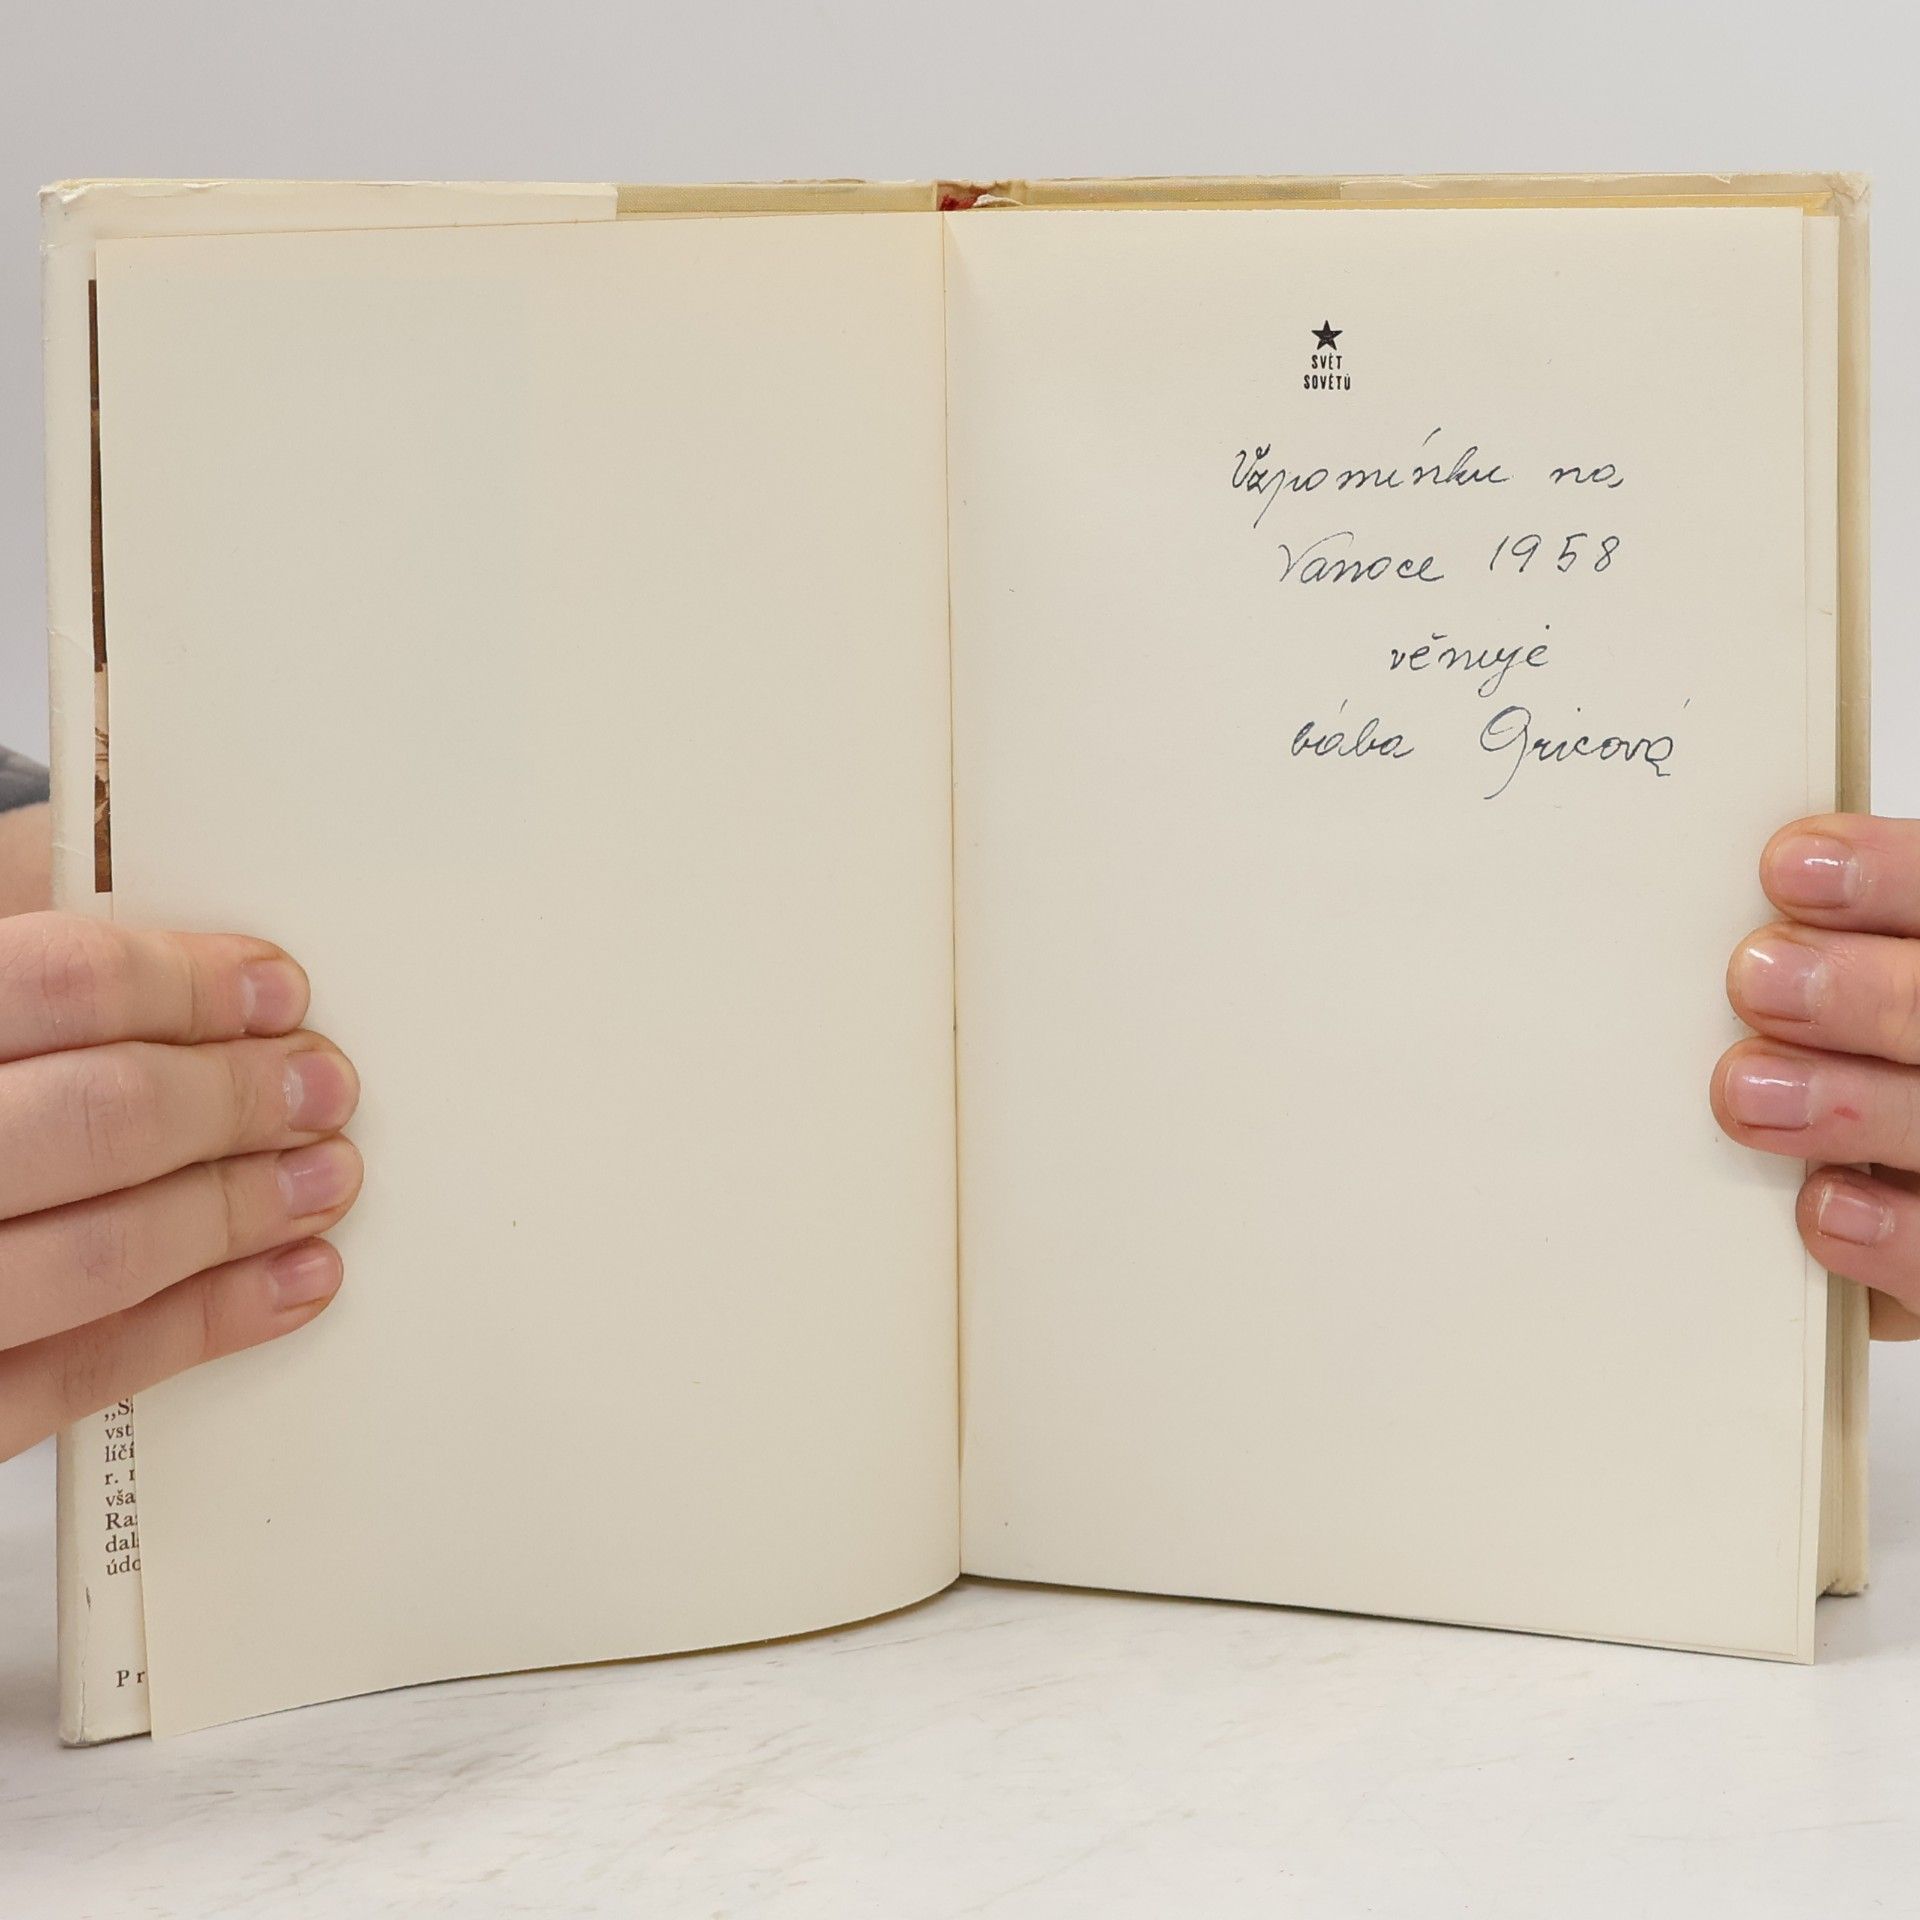 SVĚT
SOVĚTŮ
Vzpomínku na
Vanoce 1958
věnuje
bába Gricová
„S
vst
líčí
r.
vša
Ra
dal
údo
Pr